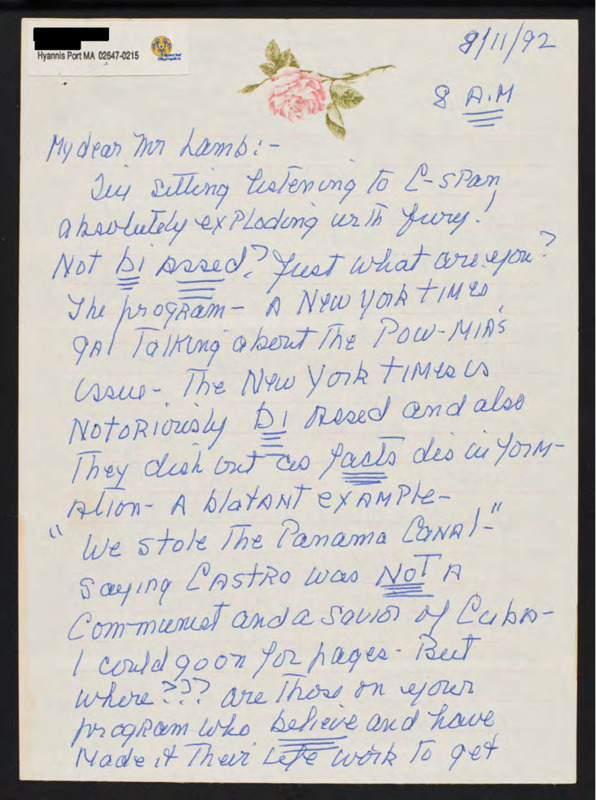 Hyannis Port MA 02647-0215
8/11/92
8 A.M
My dear Mr Lamb:-
I'm sitting listening to C-SPAN
absolutely exploding with fury!
Not Bi Assed? Just what are you?
The program- A New York Times
gal Talking about The POW-MIA's
issue- The New York Times is
Notoriously BI Assed and also
They dish out as facts disinform-
ation- A blatant example-
"We stole The Panama Canal-"
saying Castro was NOT A
Communist and a savior of Cuba-
I could go on for pages- But
where??? are Those on your
program who believe and have
Made it Their Life work to get